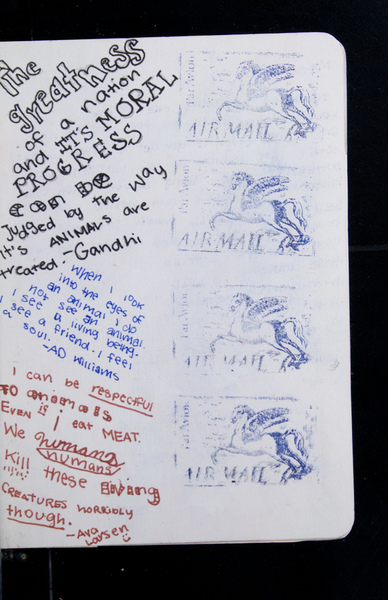 The
greatness
of a nation
and it's MORAL
PROGRESS
can be
Judged by the way
it's ANIMALS are
treated -Gandhi
When I look
into the eyes of
an animal I do
not see an animal.
I see a living being.
I see a friend. I feel
a soul.
-AD Williams
I can be respectful
TO animals
Even if I eat MEAT.
We humans
humans
Kill these living
CREATURES HORRIBLY
though.
-Ava
Larsen
Par Avion
AIR MAIL
Par Avion
AIR MAIL
Par Avion
AIR MAIL
Par Avion
AIR MAIL